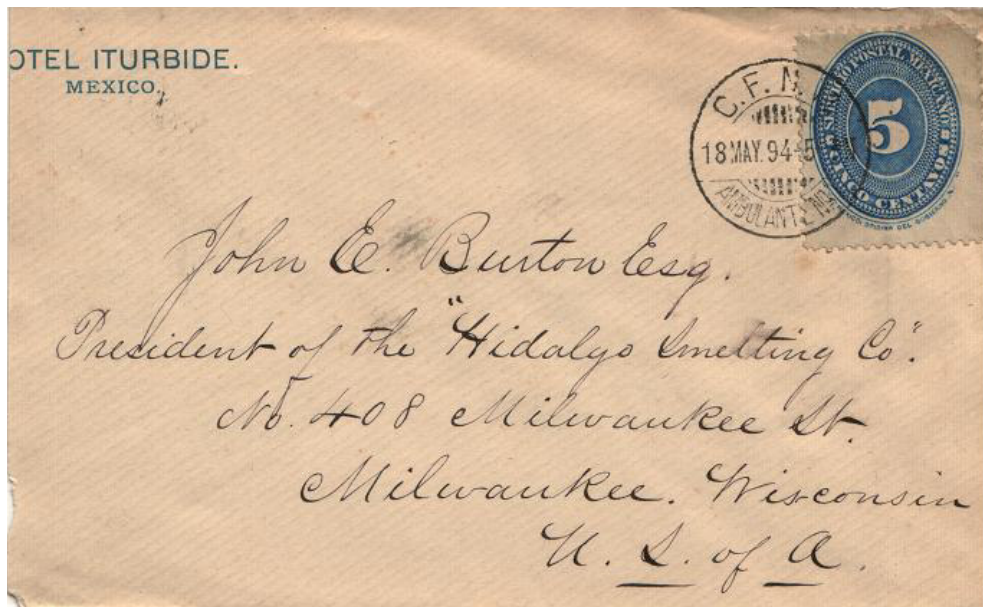 OTEL ITURBIDE.
MEXICO.
C. F. N.
18 MAY. 94
AMBULANTE
SERVICIO POSTAL MEXICANO
5
CINCO CENTAVOS
John E. Burton Esq.
President of the "Hidalgo Smelting Co".
No. 408 Milwaukee St.
Milwaukee. Wisconsin
U. S. of A.